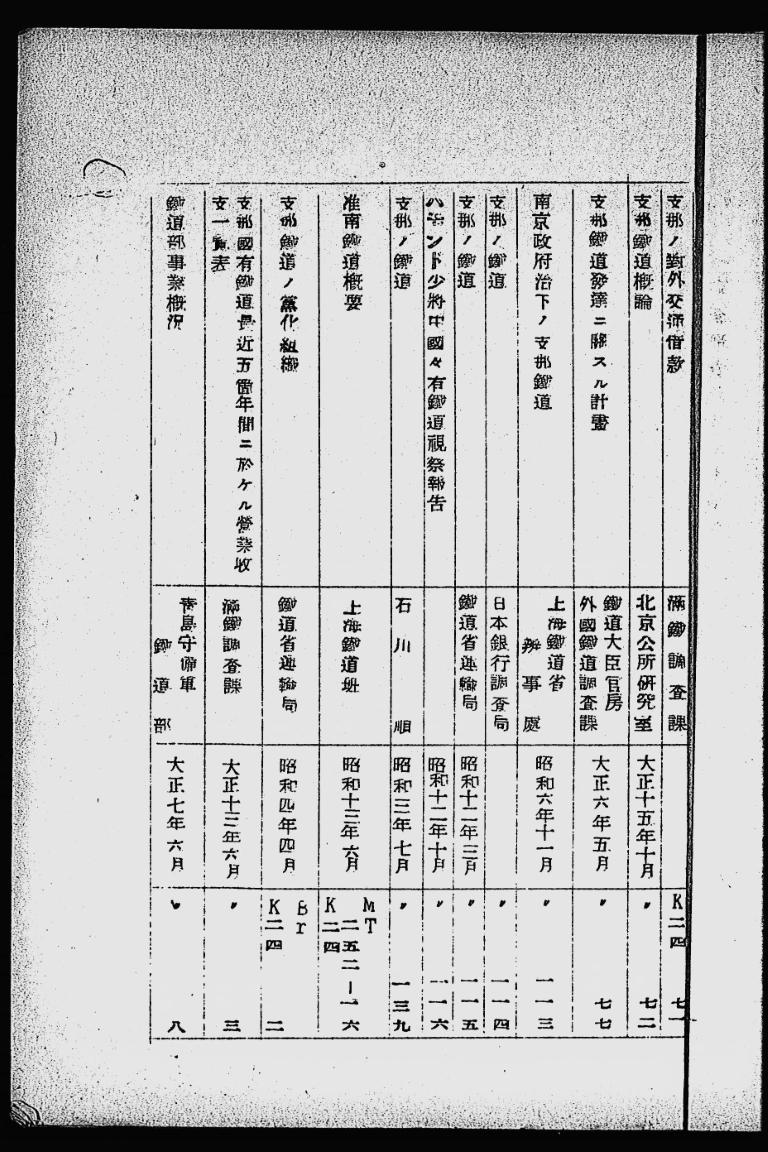 支那ノ對外交通借款
滿鐵調査課
K二四 七一
支那鐵道概論
北京公所研究室
大正十五年十月
〃 七二
支那鐵道發達ニ關スル計畫
鐵道大臣官房
外國鐵道調査課
大正六年五月
〃 七七
南京政府治下ノ支那鐵道
上海鐵道省
辨事處
昭和六年十一月
〃 一一三
支那ノ鐵道
日本銀行調査局
〃 一一四
支那ノ鐵道
鐵道省運輸局
昭和十二年三月
〃 一一五
ハモンド少將中國々有鐵道視察報告
昭和十二年十月
〃 一一六
支那ノ鐵道
石川順
昭和三年七月
〃 一三九
准南鐵道概要
上海鐵道班
昭和十三年六月
MT
二五二-一六
K二四
支那鐵道ノ黨化組織
鐵道省運輸局
昭和四年四月
Br
K二四 二
支那國有鐵道最近五箇年間ニ於ケル營業收
支一覽表
滿鐵調査課
大正十三年六月
〃 三
鐵道部事業概況
靑島守備軍
鐵道部
大正七年六月
〃 八